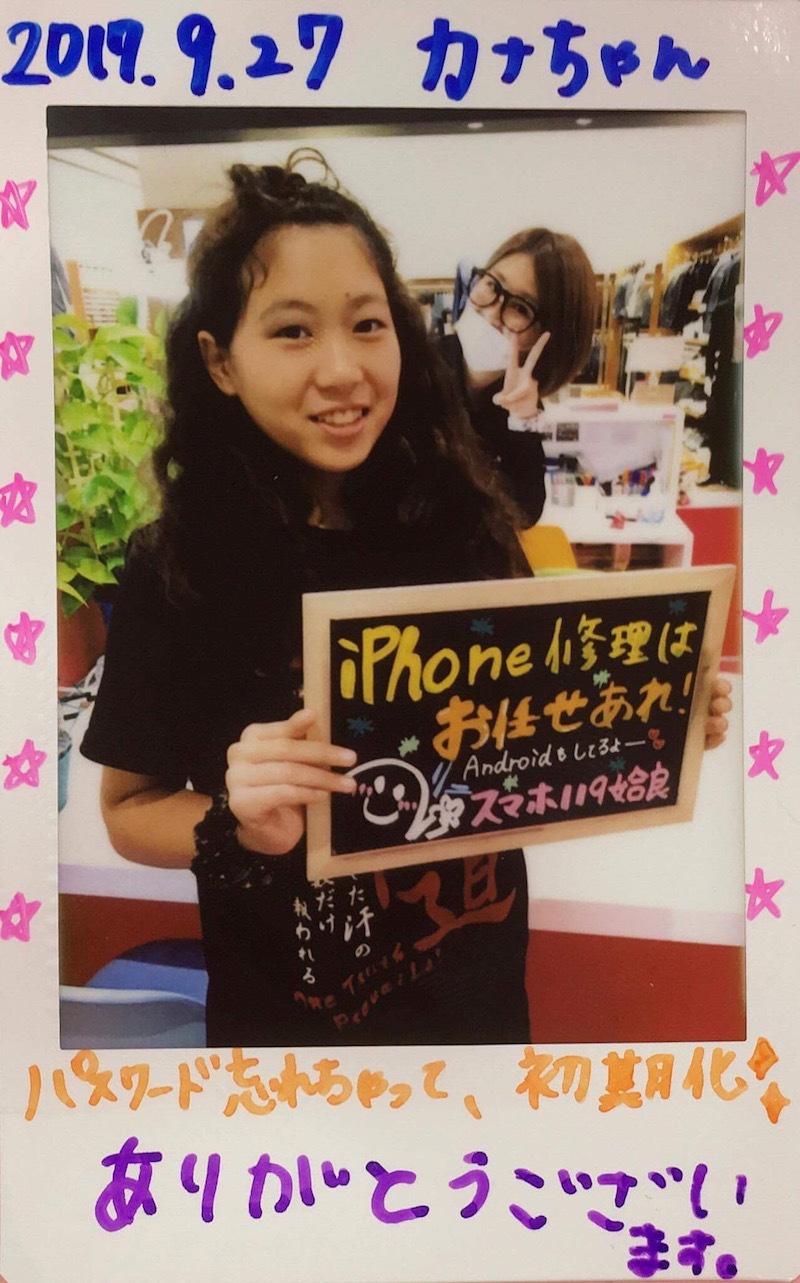 2019.9.27 カナちゃん
iPhone修理は
お任せあれ!
Androidもしてるよー
スマホ119姶良
た汗の
だけ
報われる
パスワード忘れちゃって、初期化
ありがとうござい
ます。